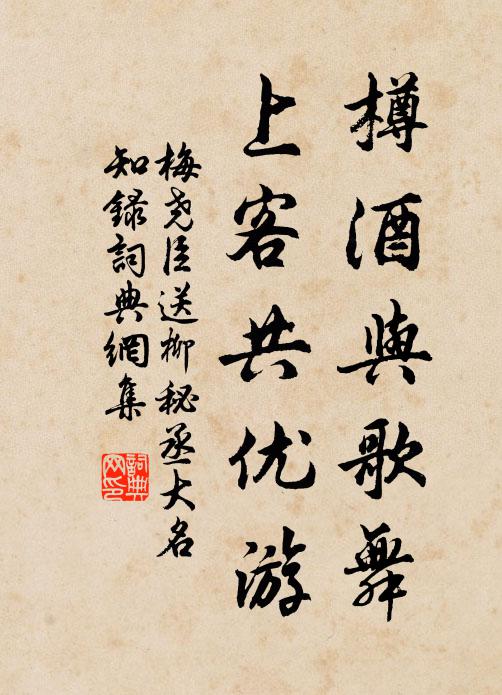 樽酒與歌舞
上客共优游
梅尧臣送柳秘丞大名
知録詞典網集
詞典网印